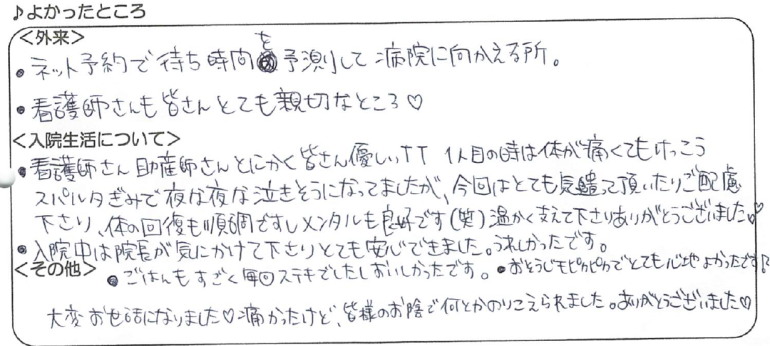 ♪よかったところ
＜外来＞
• ネット予約で待ち時間を予測して病院に向かえる所。
• 看護師さんも皆さんとても親切なところ♡
＜入院生活について＞
• 看護師さん助産師さんとにかく皆さん優しいTT 1人目の時は体が痛くてもけっこう
スパルタぎみで夜な夜な泣きそうになってましたが、今回はとても気遣って頂いたりご配慮
下さり、体の回復も順調ですしメンタルも良好です(笑)温かく支えて下さりありがとうございました♡
• 入院中は院長が気にかけて下さりとても安心できました。うれしかったです。
＜その他＞
• ごはんもすごく毎回ステキでしたしおいしかったです。• おそうじもピカピカでとても心地よかったです!
大変お世話になりました♡痛かったけど、皆様のお陰で何とかのりこえられました。ありがとうございました♡